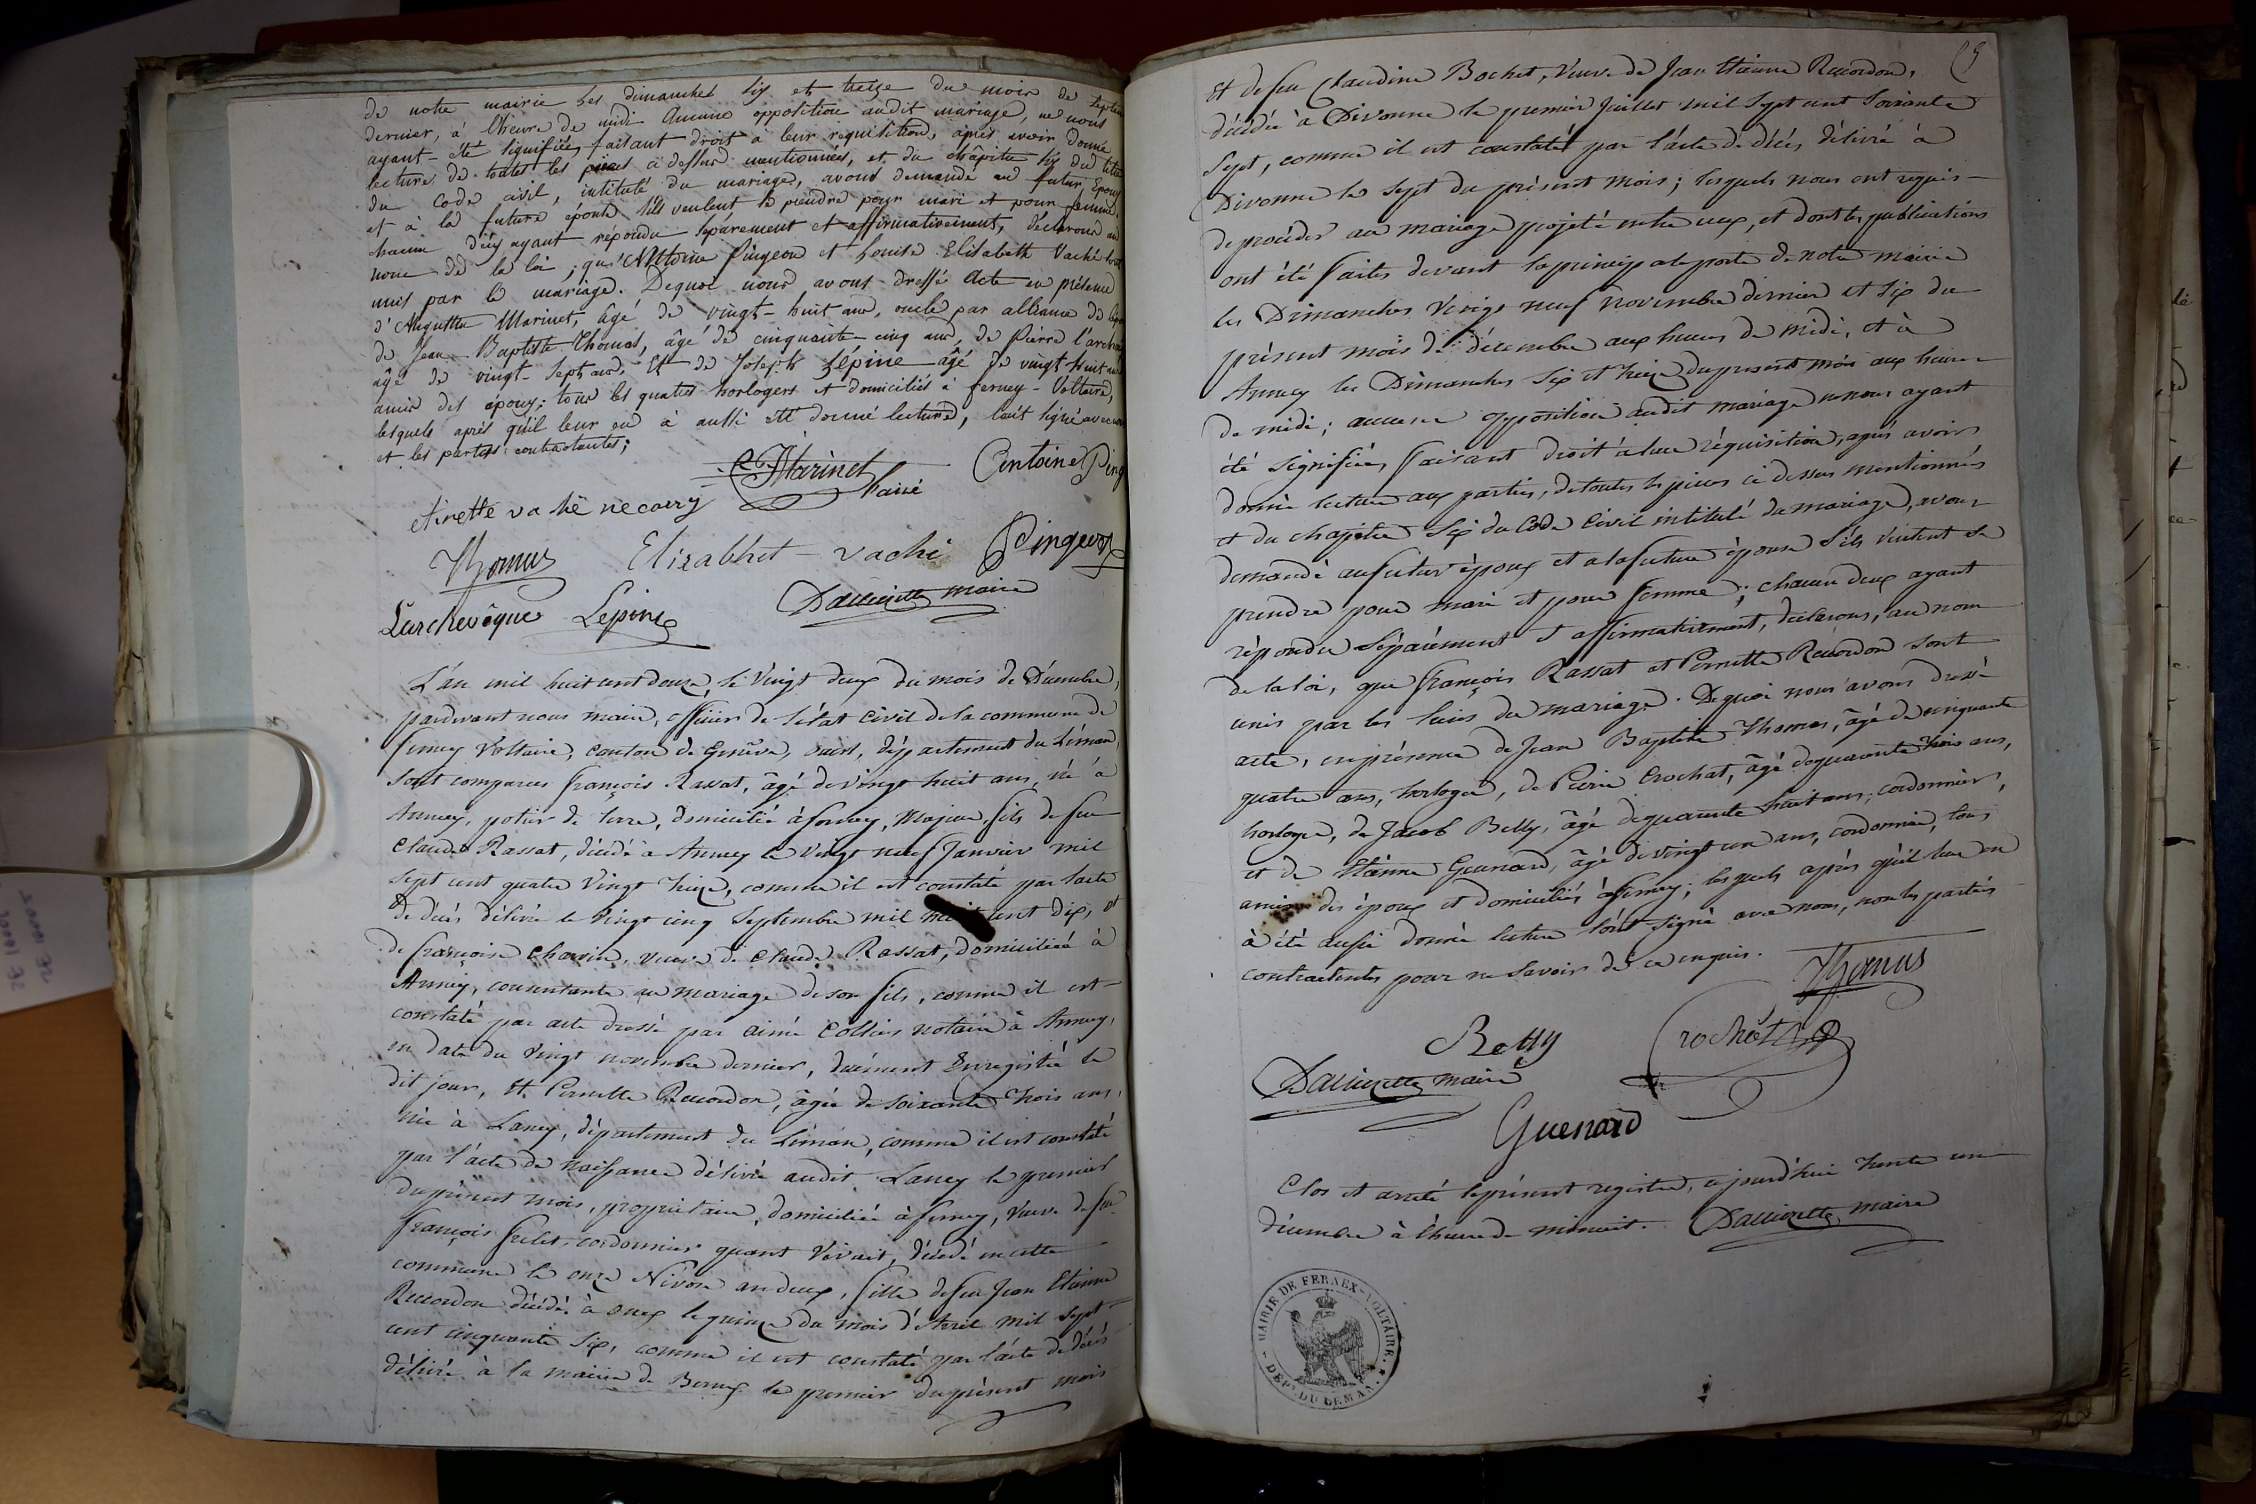 de notre mairie les dimanches six et treize du mois de Septem
dernier, à l'heure de midi Aucune opposition audit mariage, ne nous
ayant été signifiée, faisant droit à leur requisition, après avoir donné
lecture de toutes les pieces ci dessus mentionnées, et du chapitre six du titre
du Code civil, intitulé du mariage, avons demandé au futur Epoux
et à la future épouse s'ils veulent se prendre pour mari et pour femme,
chacun d'eux ayant répondu séparement et affirmativement, déclarons au
nom de la loi; qu'Antoine Pingeon et Louise Elisabeth Vaché sont
unis par le mariage. De quoi nous avons dressé Acte en présence
d'Augustin Marinet, âgé de vingt-huit ans, oncle par alliance de
de Jean Baptiste Thomas, âgé de cinquante cinq ans, de Pierre l'arche
âgé de vingt-sept ans, Et de Joseph Lépine âgé de vingt huit ans
amis des époux; tous les quatres horlogers et domiciliés à ferney-Voltaire,
lesquels après qu'il leur en à aussi été donné lecture, l'ont signé avec nous
et les parties contractantes;
Marinet Antoine Ping
vaché necarry
Thomas Elizabhet vaché Pingeon
Larchevêque Lepine Dallizette maire
L'an mil huit cent douze, le Vingt deux du mois de Décembre,
pardevant nous maire, officier de l'état Civil de la commune de
ferney Voltaire, canton de Genêve, ouest, département du Léman,
Sont comparus françois Rassat, âgé de vingt huit ans, né à
Annecy, potier de terre, domicilié à ferney, Majeur, fils de feu
Claude Rassat, décédé a Annecy le Vingt neuf Janvier mil
sept cent quatre Vingt treize, comme il est constaté par l'acte
de décés délivré le Vingt cinq Septembre mil huit cent Dix, et
de françoise Charvin, veuve de Claude Rassat, domiciliée à
Annecy, consentante au mariage de son fils, comme il est
constaté par acte dressé par aimé Collier notaire à Annecy,
en date du Vingt novembre dernier, duement Enregistré le
dit jour, Et Pernette Recordon, âgée de soixante trois ans,
née à Lancy, département du Léman, comme il est constaté
par l'acte de naissance délivré audit Lancy le premier
du présent mois, propriétaire, domiciliée à ferney, Veuve de feu
françois frilet, cordonnier quant Vivait, décédé en cette
commune le onze Nivose an deux, fille de feu Jean Etienne
Recordon décédé à onex le quinze du mois d'Avril mil sept
cent cinquante Six, comme il est constaté par l'acte de décés
délivré à la mairie de Bernex le premier du présent mois
Et de feu Claudine Bochet, Veuve de Jean Etienne Recordon,
décédée à Divonne le premier Juillet mil Sept cent Soixante
Sept, comme il est constaté par l'acte de décés délivré à
Divonne le Sept du présent mois; lesquels nous ont requis
de procéder au mariage projeté entre eux, et dont les publications
ont été faites devant la principale porte de notre mairie
les Dimanches Vingt neuf novembre dernier et Six du
présent mois de décembre aux heures de midi, et à
Annecy les Dimanches Six et treize du présent mois aux heures
de midi; aucune opposition audit mariage ne nous ayant
été signifiée, faisant droit à leur réquisition, après avoir
donné lecture aux parties, de toutes les pieces ci dessus mentionnées
et du chapitre Six du Code Civil intitulé du mariage, avons
demandé au futur époux et a la future épouse s'ils veulent se
prendre pour mari et pour femme; chacun deux ayant
répondu séparément et affirmativement, déclarons, au nom
de la loi, que françois Rassat et Pernette Recordon sont
unis par les liens du mariage. De quoi nous avons dressé
acte, en présence de Jean Baptiste Thomas, âgé de cinquante
quatre ans, horloger, de Pierre Crochat, âgé de quarante trois ans,
horloger, de Jacob Belly, âgé de quarante huit ans, cordonnier,
et de Etienne Guenard, âgé de vingt un ans, cordonnier, tous
amis des époux et domiciliés à ferney; lesquels après qu'il leur en
à été aussi donné lecture l'ont signé avec nous, non les parties
contractantes pour ne savoir de ce enquis.
Thomas
Belly Crochat
Dallizette maire
Guenard
Clos et arrêté le présent registre, aujourd'hui trente un
décembre à l'heure de minuit. Dallizette maire
MAIRIE DE FERNEX-VOLTAIRE.
DEPT. DU LEMAN